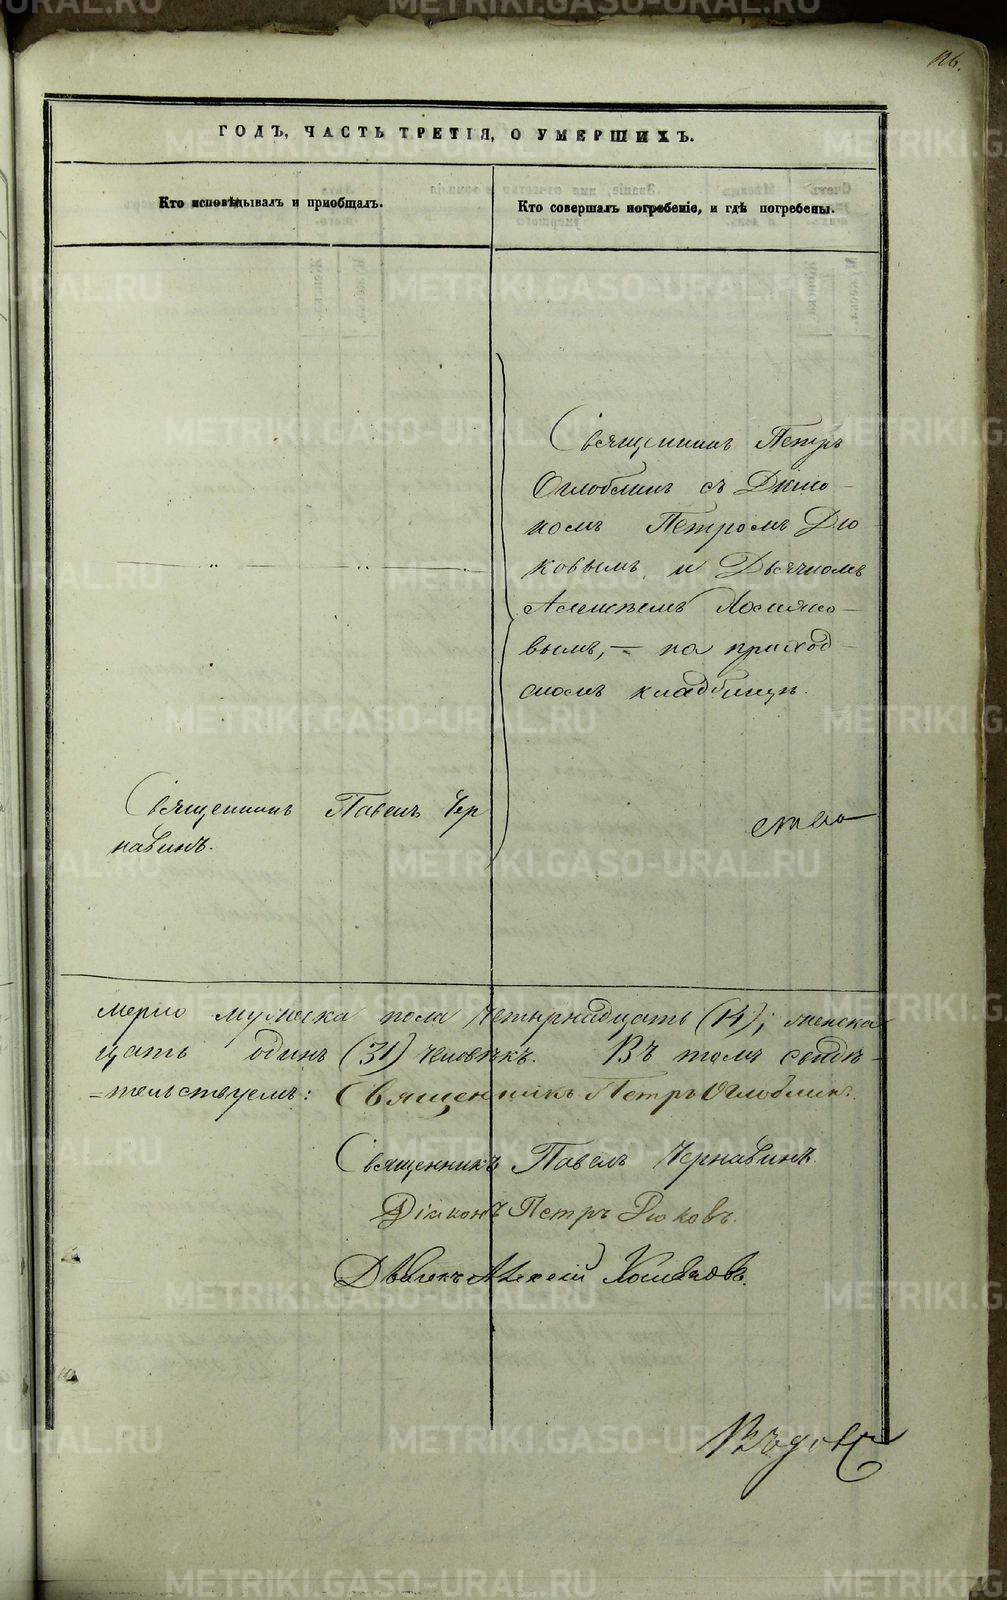 126.
ГОДЪ, ЧАСТЬ ТРЕТІЯ, О УМЕРШИХЪ.
Кто исповѣдывалъ и пріобщалъ.
Кто совершалъ погребеніе, и гдѣ погребены.
Священникъ Петръ
Оглоблинъ съ Діако-
номъ Петромъ Рю
ковымъ, и Дьячкомъ
Алексѣемъ Хомяко-
вымъ, — на приход
скомъ кладбищѣ.
Священникъ Павелъ Чер
навинъ.
мерло мужеска пола четырнадцать (14); женска
цать одинъ (31) человѣкъ. Въ томъ свидѣ-
=тельствуемъ: Священникъ Петръ Оглоблинъ.
Священникъ Павелъ Чернавинъ.
Діаконъ Петръ Рюковъ.
Дьячекъ Алексій Хомяковъ.
METRIKI.GASO-URAL.RU